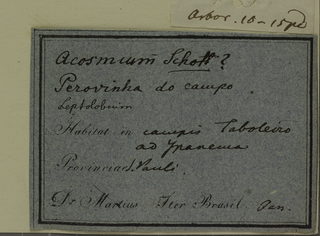 Arbor. 10-15ped
Acosmium Schott?
Perovinha do campo.
Leptolobium
Habitat in campis Taboleiro
ad Ypanema
Provinciae S. Pauli.
Dr Martius Iter Brasil. Jan.